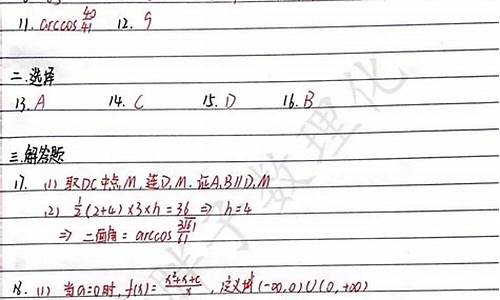 11. arccos 40/41 12. 9
二.选择
13. A 14. C 15. D 16. B
三.解答题
17. (1) 取DC中点M,连D,M.证A,B∥D,M
(2) 1/2(2+4)×3×h=36 ⇒ h=4
⇒ 二面角=arccos
18. (1) 当a=0时, f(x)= x²+x+c/x , 定义域(-∞,0)∪(0,+∞)
数理化